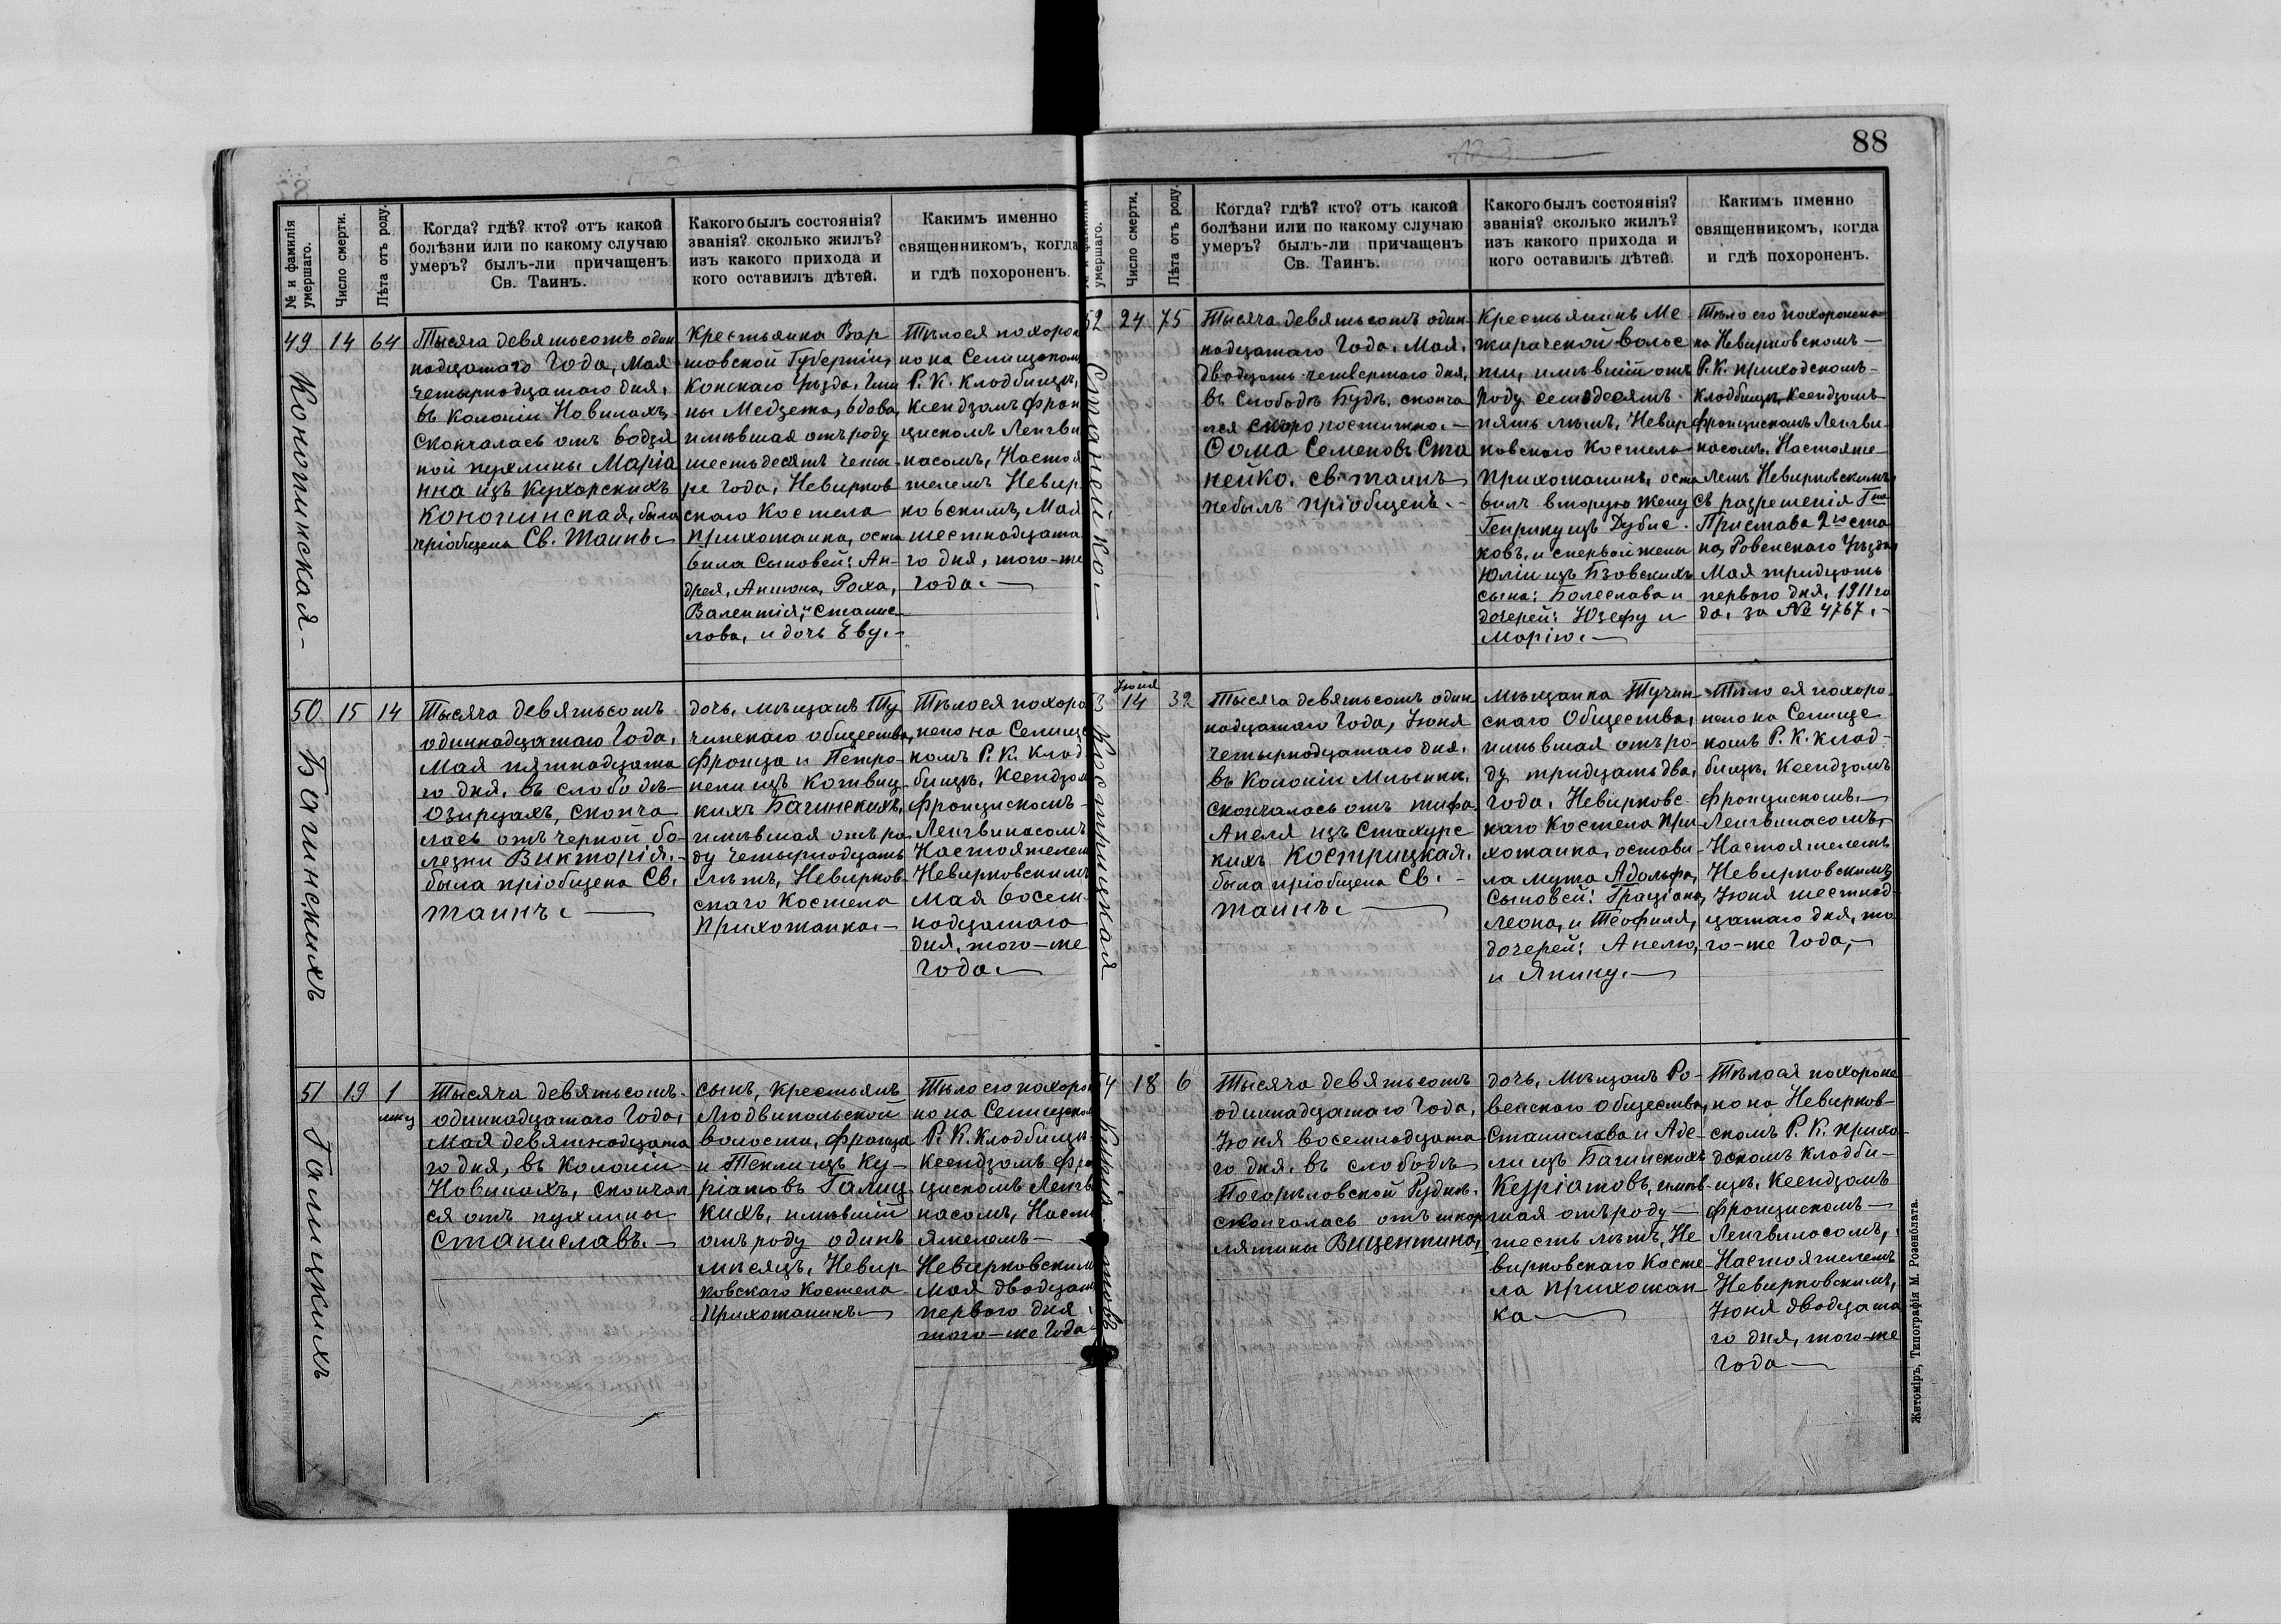 88
№ и фамилія умершаго.
Число смерти.
Лѣта отъ роду.
Когда? гдѣ? кто? отъ какой
болѣзни или по какому случаю
умеръ? былъ-ли причащенъ
Св. Таинъ.
Какого былъ состоянія?
званія? сколько жилъ?
изъ какого прихода и
кого оставилъ дѣтей.
Какимъ именно
священникомъ, когда
и гдѣ похороненъ.
49
Конопинская
14
64
Тысяча девятьсотъ один
надцатаго Года, Мая
четырнадцатаго дня,
въ колоніи Новинахъ
скончалась отъ водзя
ной пухлины Маріа
нна изъ Кухарскихъ
Конопинская, была
пріобщена Св. Таинъ.
Крестьянка Вар
шавской Губерніи,
Конскаго Уѣзда, Гми
ны Медзежа, вдова,
имѣвшая отъ роду
шестьдесятъ четы
ре Года, Невирков
скаго Костела
прихожанка, оста
вила Сыновей: Ан-
дрея, Антона, Роха,
Валентія, и Станис-
лова, и дочь Еву.
Тѣло ея похоро
но на Селищском
Р. К. кладбищѣ,
ксендзомъ Фран
цискомъ Ленгви
насомъ, Настоя
телемъ Невир
ковскимъ, Мая
шестнадцата
го дня, того-же
Года.
50
Багинскихъ
15
14
Тысяча девятьсотъ
одиннадцатаго Года,
Мая пятнадцата
го дня, въ слободѣ
Озирцахъ, сконча
лась отъ черной бо-
лезни Викторія.
была пріобщена Св.
Таинъ.
дочь, мѣщанъ Ту
чинскаго общества,
Франца и Петро-
нели изъ Котвиц
кихъ Багинскихъ,
имѣвшая отъ ро-
ду четырнадцать
лѣтъ, Невирков-
скаго Костела
Прихожанка.
Тѣло ея похоро
нено на Селищс
комъ Р. К. Клад
бищѣ, Ксендзом
Францискомъ
Ленгвинасомъ
Настоятелем
Невирковскимъ
Мая восем-
надцатаго
дня, того-же
Года.
51
Галицкихъ
19
1
мѣц
Тысяча девятьсотъ
одиннадцатаго Года,
Мая девятнадцата
го дня, въ Колоніи
Новинахъ, скончал
ся отъ пухлины
Станиславъ.
сынъ, крестьянъ
Людвипольской
волости, Франца
и Теклі изъ Ку-
ріатовъ Галиц
кихъ, имѣвшій
отъ роду одинъ
мѣсяцъ, Невир
ковскаго Костела
Прихожанинъ
Тѣло его похоро
но на Селищско
Р. К. Кладбищѣ
Ксендзомъ Фра
цискомъ Ленгв
насомъ, Насто
ятелемъ
Невирковским
Мая двадцать
перваго дня
того-же Года
№ и фамилія умершаго.
Число смерти.
Лѣта отъ роду.
Когда? гдѣ? кто? отъ какой
болѣзни или по какому случаю
умеръ? былъ-ли причащенъ
Св. Таинъ.
Какого былъ состоянія?
званія? сколько жилъ?
изъ какого прихода и
кого оставилъ дѣтей.
Какимъ именно
священникомъ, когда
и гдѣ похороненъ.
52
Станейко.
24
75
Тысяча девятьсотъ один
надцатаго Года, Мая,
двадцать четвертаго дня,
въ Слободѣ Будѣ, сконча
лся скоропостижно.
Ѳома Семеновъ Ста
нейко. св. таинъ
небылъ пріобщенъ.
Крестьянинъ Ме
жиричской волос
ти, имѣвшій отъ
роду семьдесятъ
пять лѣтъ, Невир
ковскаго Костела
прихожанинъ, оста
вилъ вторую жену
Генрику изъ Дубис
ковъ, и спервой жены
Юліи изъ Бзовскихъ
сына: Болеслава и
дочерей: Юзефу и
Марію.
Тѣло его похоронено
на Невирковскомъ
Р. К. приходскомъ
кладбищѣ, Ксендзомъ
Францискомъ Ленгви-
насомъ, Настояте-
лемъ Невирковскимъ,
съ разрешенія Гна
Пристава 2го ста
на, Ровенскаго Уѣзда,
Мая тридцать
перваго дня, 1911 го
да, за № 4767.
53
Кострицкая
Іюня
14
32
Тысяча девятьсотъ один
надцатаго Года, Іюня
четырнадцатаго дня,
въ Колоніи Млынки,
скончалась отъ тифа
Анеля изъ Стахурс
кихъ Кострицкая.
была пріобщена Св.
Таинъ.
мѣщанка Тучин-
скаго Общества,
имѣвшая отъ ро-
ду тридцать два,
года, Невирковс-
каго Костела При
хожанка, остави-
ла мужа Адольфа,
Сыновей: Граціана,
Леона, и Теофиля,
дочерей: Анелю,
и Янину.
Тѣло ея похоро-
нено на Селищс
комъ Р. К. клад-
бищѣ, Ксендзомъ
Францискомъ
Ленгвинасомъ,
Настоятелемъ
Невирковскимъ,
Іюня шестнад-
цатаго дня, то
го-же Года,
54
18
6
Тысяча девятьсотъ
одиннадцатаго Года,
Іюня восемнадцата
го дня, въ слободѣ
Погорѣловской Рудкѣ.
скончалась отъ шкор
лятины Вицентина,
дочь, мѣщанъ Ро-
венскаго общества,
Станислава и Аде-
ли изъ Багинскихъ
Куріатовъ, имѣв-
шая отъ роду
шесть лѣтъ, Не
вирковскаго Косте
ла прихожан
ка
Тѣло ея похороне
но на Невирков-
скомъ Р. К. прихо-
дскомъ кладби-
щѣ, Ксендзомъ
Францискомъ
Ленгвинасомъ,
Настоятелемъ
Невирковскимъ,
Іюня двадцата
го дня, того-же
Года
Житоміръ, Типографія М. Розенблата.